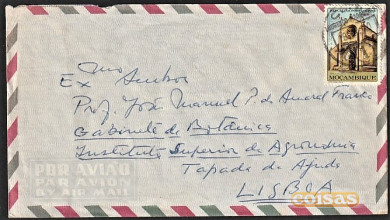 MOÇAMBIQUE
Ex mo Senhor
Prof. José Manuel P. de Amaral Franco
Gabinete de Botânica
Instituto Superior de Agronomia
Tapada da Ajuda
LISBOA
POR AVIÃO
PAR AVION
BY AIR MAIL
coisas